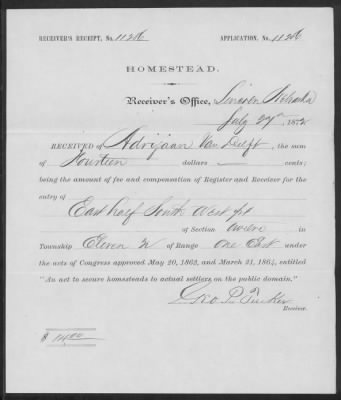 RECEIVER'S RECEIPT, No. 11286 APPLICATION, No. 11286
HOMESTEAD.
Receiver's Office, Lincoln Nebraska
July 27th 1872
RECEIVED OF Adrijaan Van Delft, the sum
of Fourteen dollars — cents;
being the amount of fee and compensation of Register and Receiver for the
entry of
East half South West qr
of Section Twelve in
Township Eleven N of Range One East under
the acts of Congress approved May 20, 1862, and March 21, 1864, entitled
"An act to secure homesteads to actual settlers on the public domain."
Geo P. Tucker
Receiver.
$ 14.00